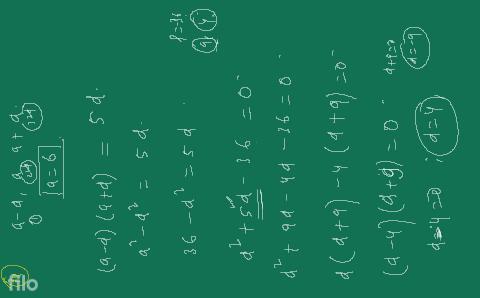 a-d, a, a+d
a=6
(a-d)(a+d) = 5d
a² - d² = 5d
36 - d² = 5d
d² + 5d - 36 = 0
d² + 9d - 4d - 36 = 0
d(d+9) - 4(d+9) = 0
(d-4)(d+9) = 0
d-4=0
d=4
d+9=0
d=-9
9
4
filo